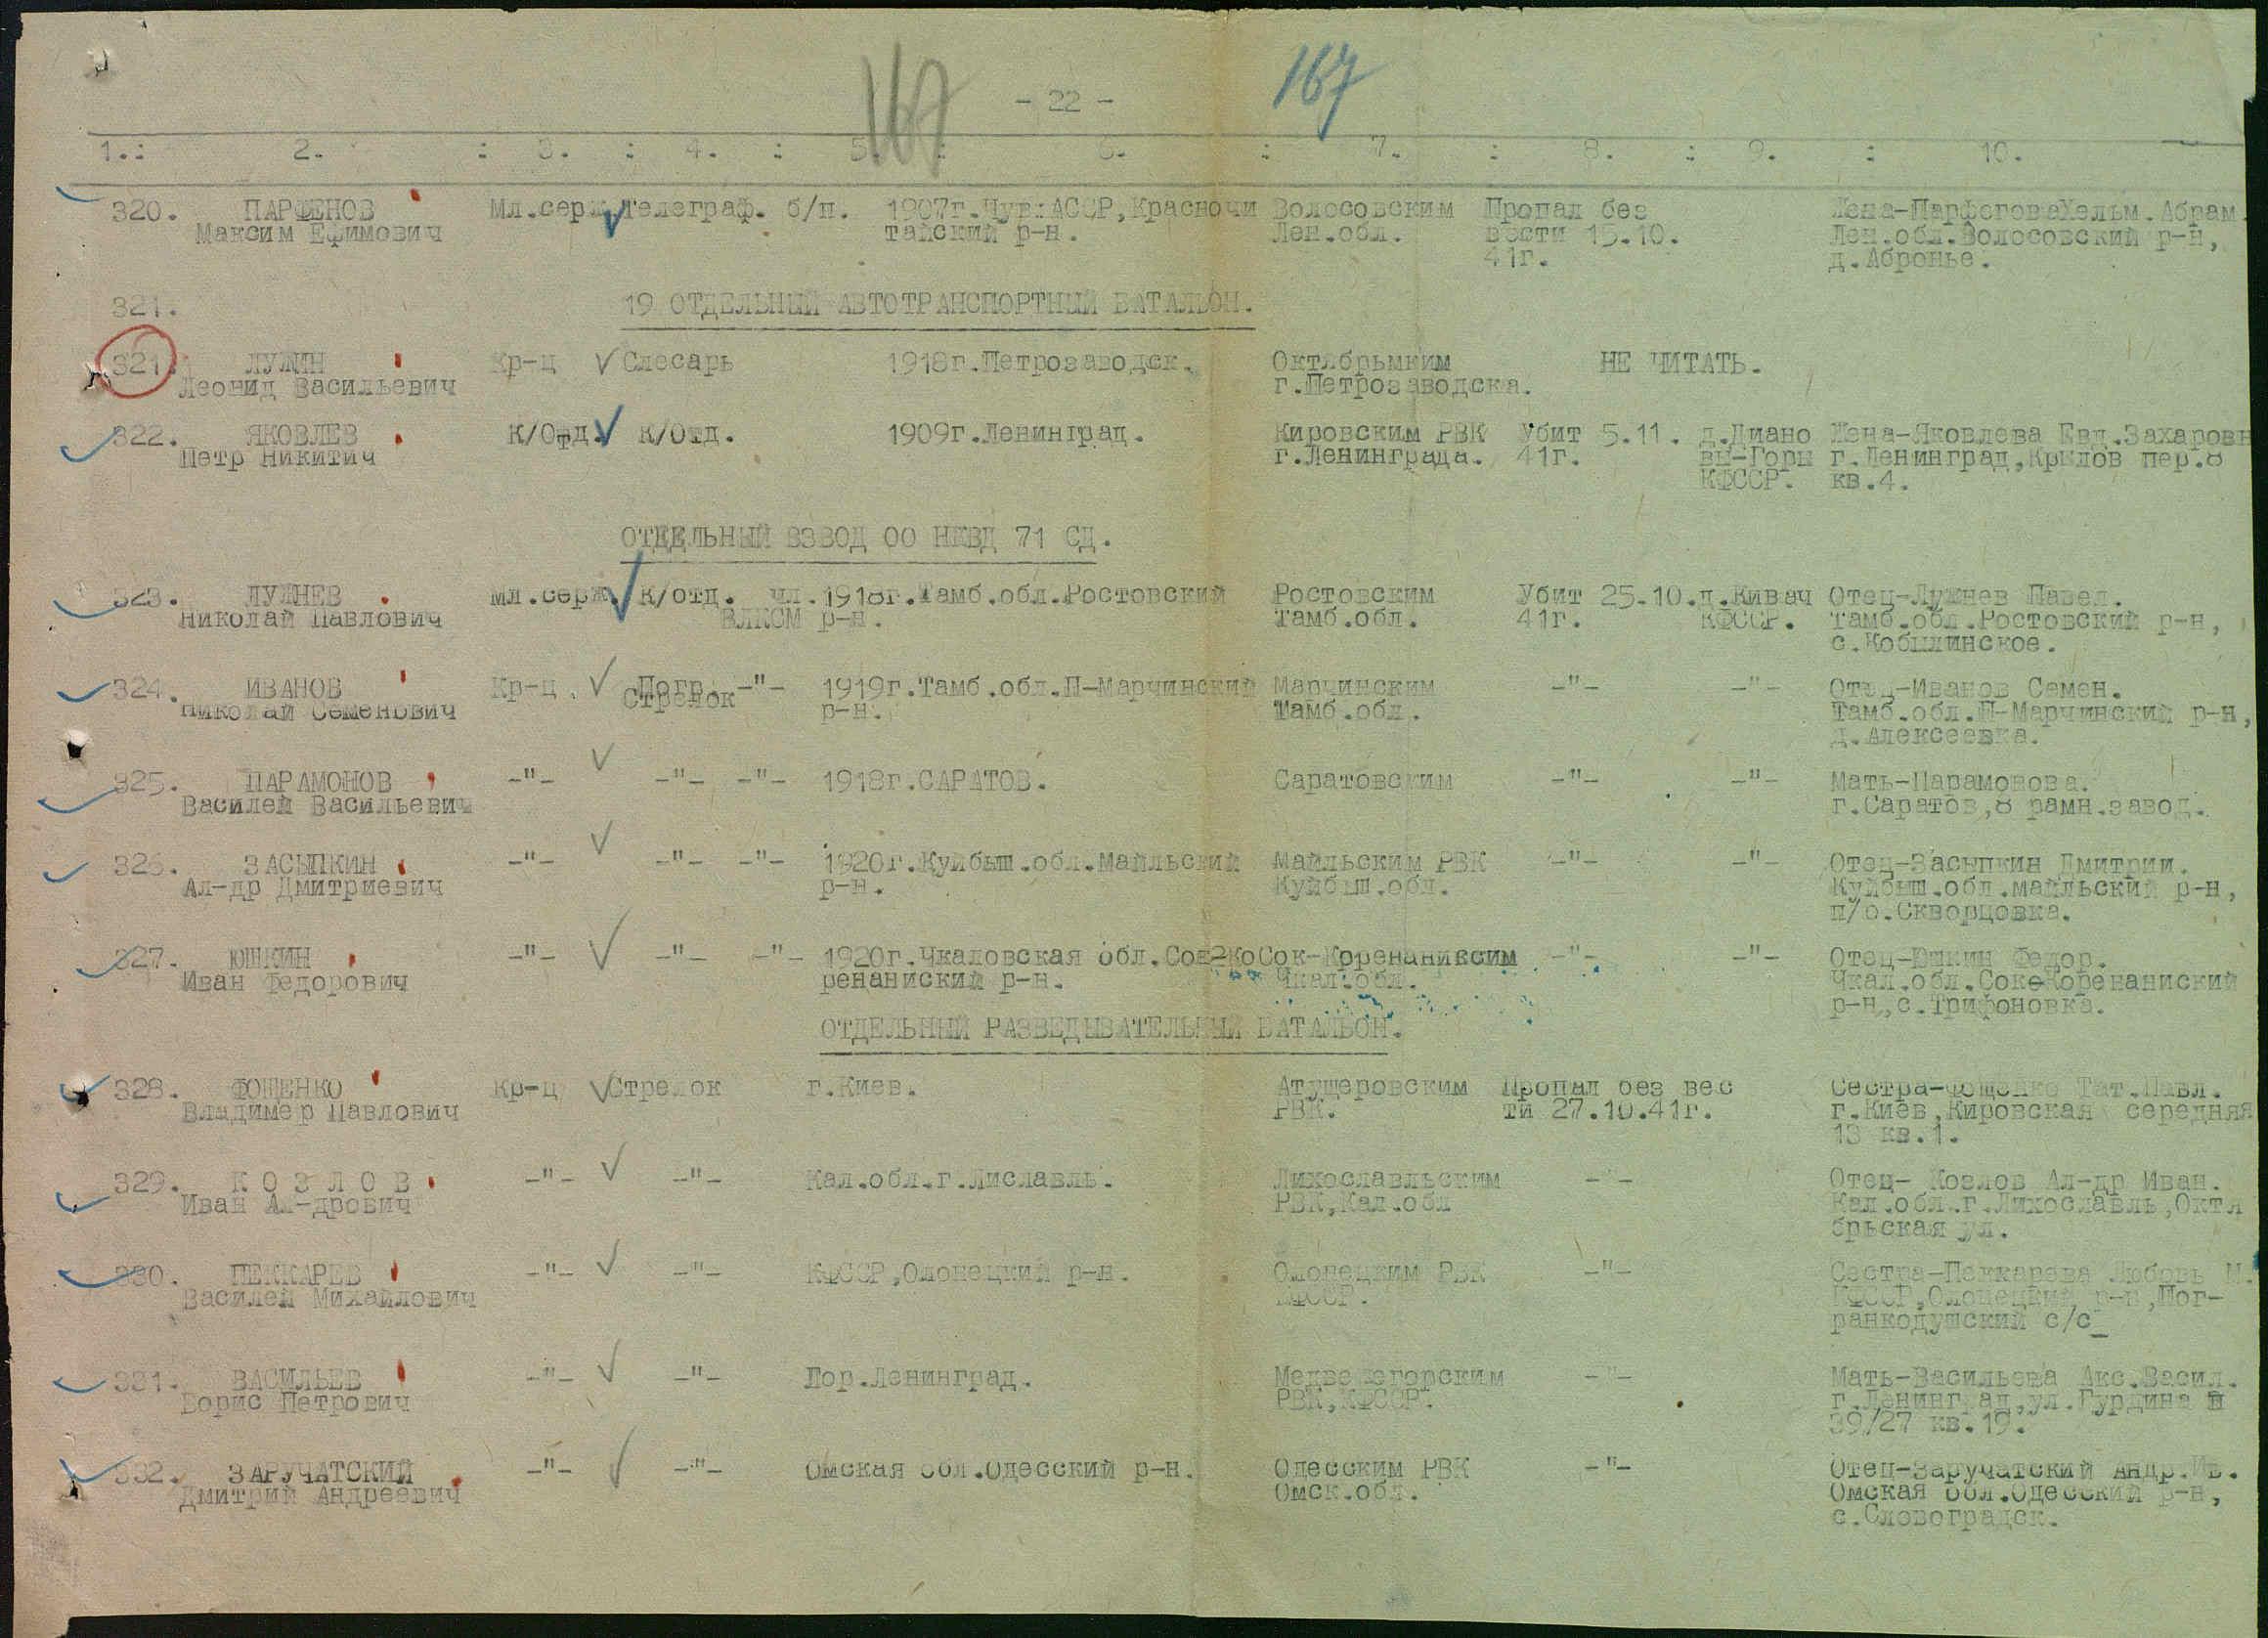 167
- 22 -
167
1.: 2. : 3. : 4. : 5. : 6. : 7. : 8. : 9. : 10.
320. ПАРФЕНОВ Мл.серж. Телеграф. б/п. 1907г.Чув.АССР,Красночи Волосовским Пропал без Жена-Парфенова Хельм.Абрам.
Максим Ефимович тайский р-н. Лен.обл. вести 15.10. Лен.обл.Волосовский р-н,
41г. д.Абронье.
321. 19 ОТДЕЛЬНЫЙ АВТОТРАНСПОРТНЫЙ БАТАЛЬОН.
321. ЛУЖИН Кр-ц Слесарь 1918г.Петрозаводск. Октябрьмким НЕ ЧИТАТЬ.
Леонид Васильевич г.Петрозаводска.
322. ЯКОВЛЕВ К/Отд. К/Отд. 1909г.Ленинград. Кировским РВК Убит 5.11. д.Диано Жена-Яковлева Евд.Захаровн
Петр Никитич г.Ленинграда. 41г. вы-Горы г.Ленинград,Крылов пер.8
КФССР. кв.4.
ОТДЕЛЬНЫЙ ВЗВОД ОО НКВД 71 СД.
323. ЛУЖНЕВ Мл.серж. К/отд. чл. 1918г.Тамб.обл.Ростовский Ростовским Убит 25.10. д.Кивач Отец-Лужнев Павел.
Николай Павлович ВЛКСМ р-н. Тамб.обл. 41г. КФССР. Тамб.обл.Ростовский р-н,
с.Кобылинское.
324. ИВАНОВ Кр-ц. Погр. -"- 1919г.Тамб.обл.П-Марчинский Марчинским -"- -"- Отец-Иванов Семен.
Николай Семенович Стрелок р-н. Тамб.обл. Тамб.обл.П-Марчинский р-н,
д.Алексеевка.
325. ПАРАМОНОВ -"- -"- -"- 1918г.САРАТОВ. Саратовским -"- -"- Мать-Парамонова.
Василей Васильевич г.Саратов,8 рамн.завод.
326. ЗАСЫПКИН -"- -"- -"- 1920г.Куйбыш.обл.Майльский Майльским РВК -"- -"- Отец-Засыпкин Дмитрии.
Ал-др Дмитриевич р-н. Куйбыш.обл. Куйбыш.обл.майльский р-н,
п/о.Скворцовка.
327. ЮШКИН -"- -"- -"- 1920г.Чкаловская обл.Сок-Ко Сок-Коренаниксим -"- -"- Отец-Юшкин Федор.
Иван Федорович ренаниский р-н. Чкал.обл. Чкал.обл.Сок-Коренаниский
р-н,с.Трифоновка.
ОТДЕЛЬНЫЙ РАЗВЕДЫВАТЕЛЬНЫЙ БАТАЛЬОН.
328. ФОЩЕНКО Кр-ц Стрелок г.Киев. Атущеровским Пропал без вес Сестра-Фощенко Тат.Павл.
Владимер Павлович РВК. ти 27.10.41г. г.Киев,Кировская середняя
13 кв.1.
329. К О З Л О В -"- -"- Кал.обл.г.Лиславль. Лихославльским -"- Отец- Козлов Ал-др Иван.
Иван Ал-дрович РВК,Кал.обл Кал.обл.г.Лихославль,Октя
брьская ул.
330. ПЕККАРЕВ -"- -"- КФССР,Олонецкий р-н. Олонецким РВК -"- Сестра-Пеккарева Любовь М.
Василей Михайлович КФССР. КФССР,Олонецкий р-н,Пог-
ранкодушский с/с_
331. ВАСИЛЬЕВ -"- -"- Гор.Ленинград. Медвежегорским -"- Мать-Васильева Акс.Васил.
Борис Петрович РВК,КФССР. г.Ленинград,ул.Гурдина
39/27 кв.19.
332. ЗАРУЧАТСКИЙ -"- -"- Омская обл.Одесский р-н. Одесским РВК -"- Отец-Заручатский Андр.Ив.
Дмитрий Андреевич Омск.обл. Омская обл.Одесский р-н,
с.Словоградск.